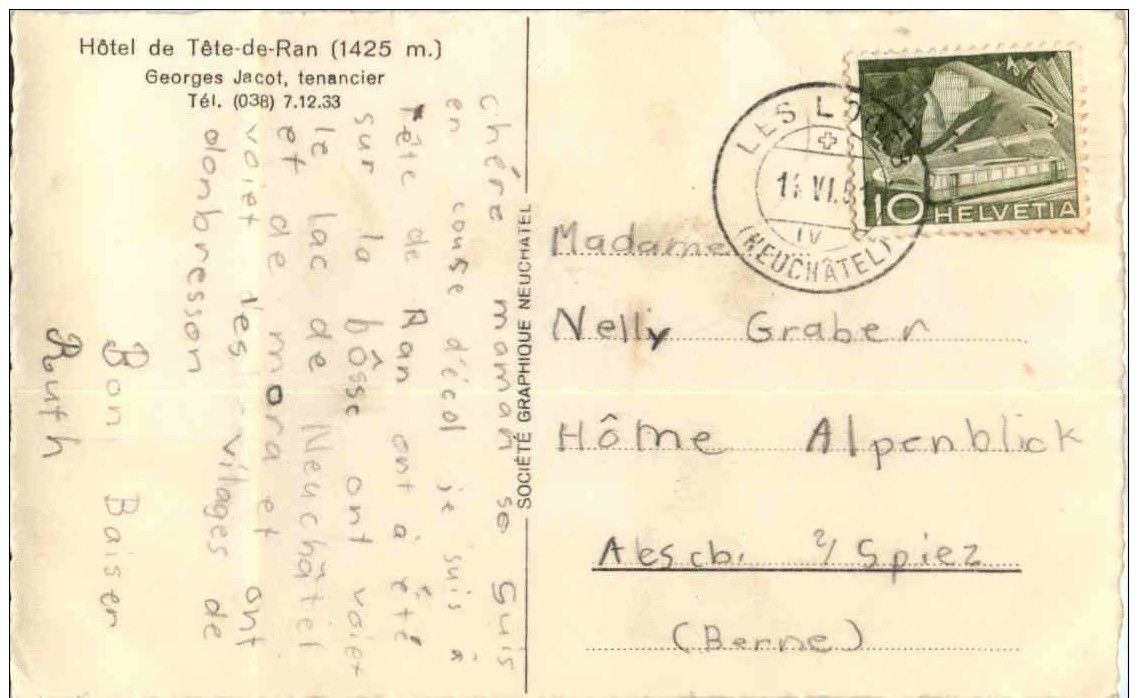 Hôtel de Tête-de-Ran (1425 m.)
Georges Jacot, tenancier
Tél. (038) 7.12.33
chére maman se suis
en couse d'écol je suis à
tête de Ran ont à été
sur la bôsse ont voiet
le lac de Neuchâtel
et de mora et ont
voiet les vilages de
donbresson
Bon Baiser
Ruth
SOCIÉTÉ GRAPHIQUE NEUCHATEL
LES LOGES
VI.5
IV
(NEUCHÂTEL)
10 HELVETIA
Madame
Nelly Graber
Hôme Alpenblick
Aescbi Spiez
(Berne)